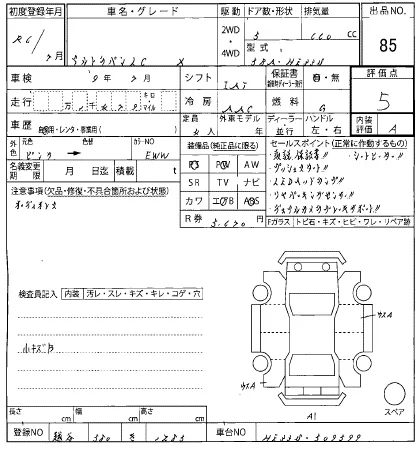 初度登録年月 車名・グレード 駆動 ドア数・形状 排気量 出品NO.
R6/ 7月 X 2WD・4WD 5 660 cc 85
型式
車検 9年 7月 シフト IAT 保証書 有・無 評価点
走行 キロ マイル 冷房 AAC 燃料 G 5
車歴 自家用・レンタ・事業用( ) 定員 4人 外車モデル 年 ディーラー 並行 ハンドル 左・右 内装評価 A
外色 元色 ピンク 色替 カラーNO EWW
装備品(純正品に限る) セールスポイント(正常に作動するもの)
名義変更期限 月 日迄 積載 t
PS PW AW
SR TV ナビ
カワ エアB ABS
R券 5,690
取説、保証書!! シートヒーター!!
プッシュスタート!!
LEDヘッドランプ!!
リヤパーキングセンサー!!
デュアルカメラブレーキサポート!!
Fガラス トビ石・キズ・ヒビ・ワレ・リペア跡
注意事項(欠品・修復・不具合箇所および状態)
オーディオレス
検査員記入 内装 汚レ・スレ・キズ・キレ・コゲ・穴
小キズ有
ウスA
ウスA
A1
スペア
長さ cm 幅 cm 高さ cm
登録NO 越谷 580 車台NO